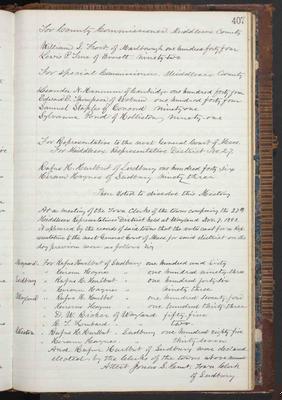 407
For County Commissioner Middlesex County
William S. Frost of Marlborough one hundred forty four
Levi P. True of Everett ninety two
For Special Commissioners Middlesex County
Leander N. Hannum of Cambridge one hundred forty four
Edward E. Thompson of Woburn one hundred forty four
Samuel Staples of Concord Ninety one
Sylvanus Pond of Holliston ninety one
For Representative to the next General Court of Mass.
For Middlesex Representative District No. 27.
Rufus H. Hurlbut of Sudbury one hundred forty six
Hiram Haynes of Sudbury Ninety three
Then Voted to dissolve this Meeting
At a meeting of the Town Clerks of the towns comprising the 27th
Middlesex Representative District held at Wayland Nov. 7. 1882.
it appeared by the records of said Towns that the votes cast for a Rep-
resentative to the next General Court of Mass. for said district on the
day previous were as follows viz
Maynard. For Rufus Hurlbut of Sudbury one hundred and sixty
" Hiram Haynes " one hundred ninety three
Sudbury " Rufus H. Hurlbut " one hundred forty six
" Hiram Haynes " ninety three
Wayland " Rufus H. Hurlbut " one hundred twenty four
" Hiram Haynes " one hundred thirty three
" D. W. Ricker of Wayland fifty five
" two
" Rufus H. Hurlbut " Sudbury one hundred eighty five
" Hiram Haynes " thirty seven
And Rufus Hurlbut of Sudbury was declared
elected by the Clerks of the towns above
Attest Jonas S. Hunt. Town Clerk
of Sudbury